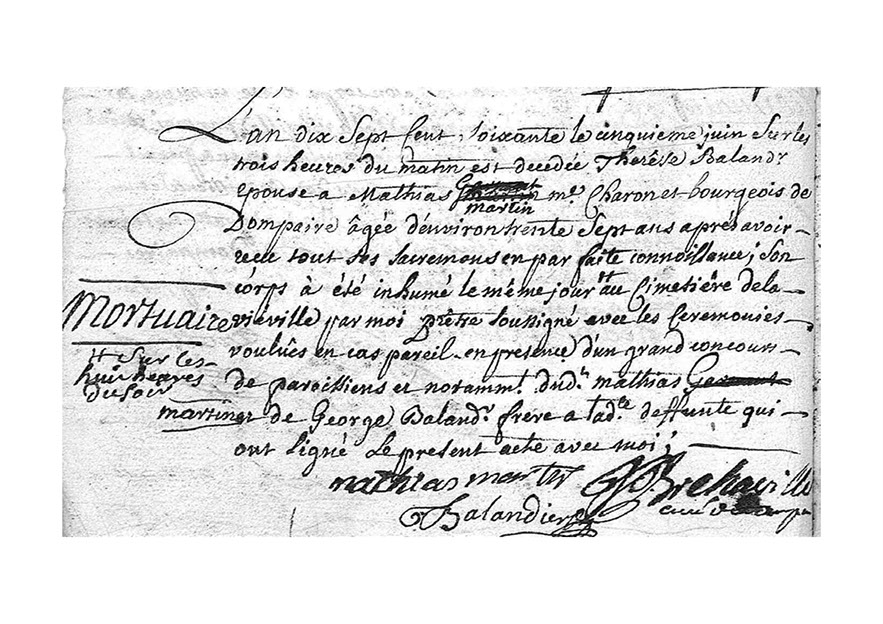 L'an dix Sept Cent Soixante le cinquieme juin Sur les
trois heures du matin est decedée Therêse Baland.r
epouse a Mathias martin m.e Charon et bourgeois de
Dompaire âgée d'environ trente Sept ans aprés avoir
recu tout ses Sacremens en parfaite connoissance; Son
corps à été inhumé le même jour # au Cimetière de la
vieville par moi prêtre Soussigné avec les Ceremonies
voulües en cas pareil en presence d'un grand concours
de paroissiens et notamm.t dud.t mathias
martin et de George Baland.r frère a lad.te deffunte qui
ont Signé le present acte avec moi;
Mortuaire
# Sur les
huit heures
du Soir
mathias martin
Brehaville
Balandier
curé de